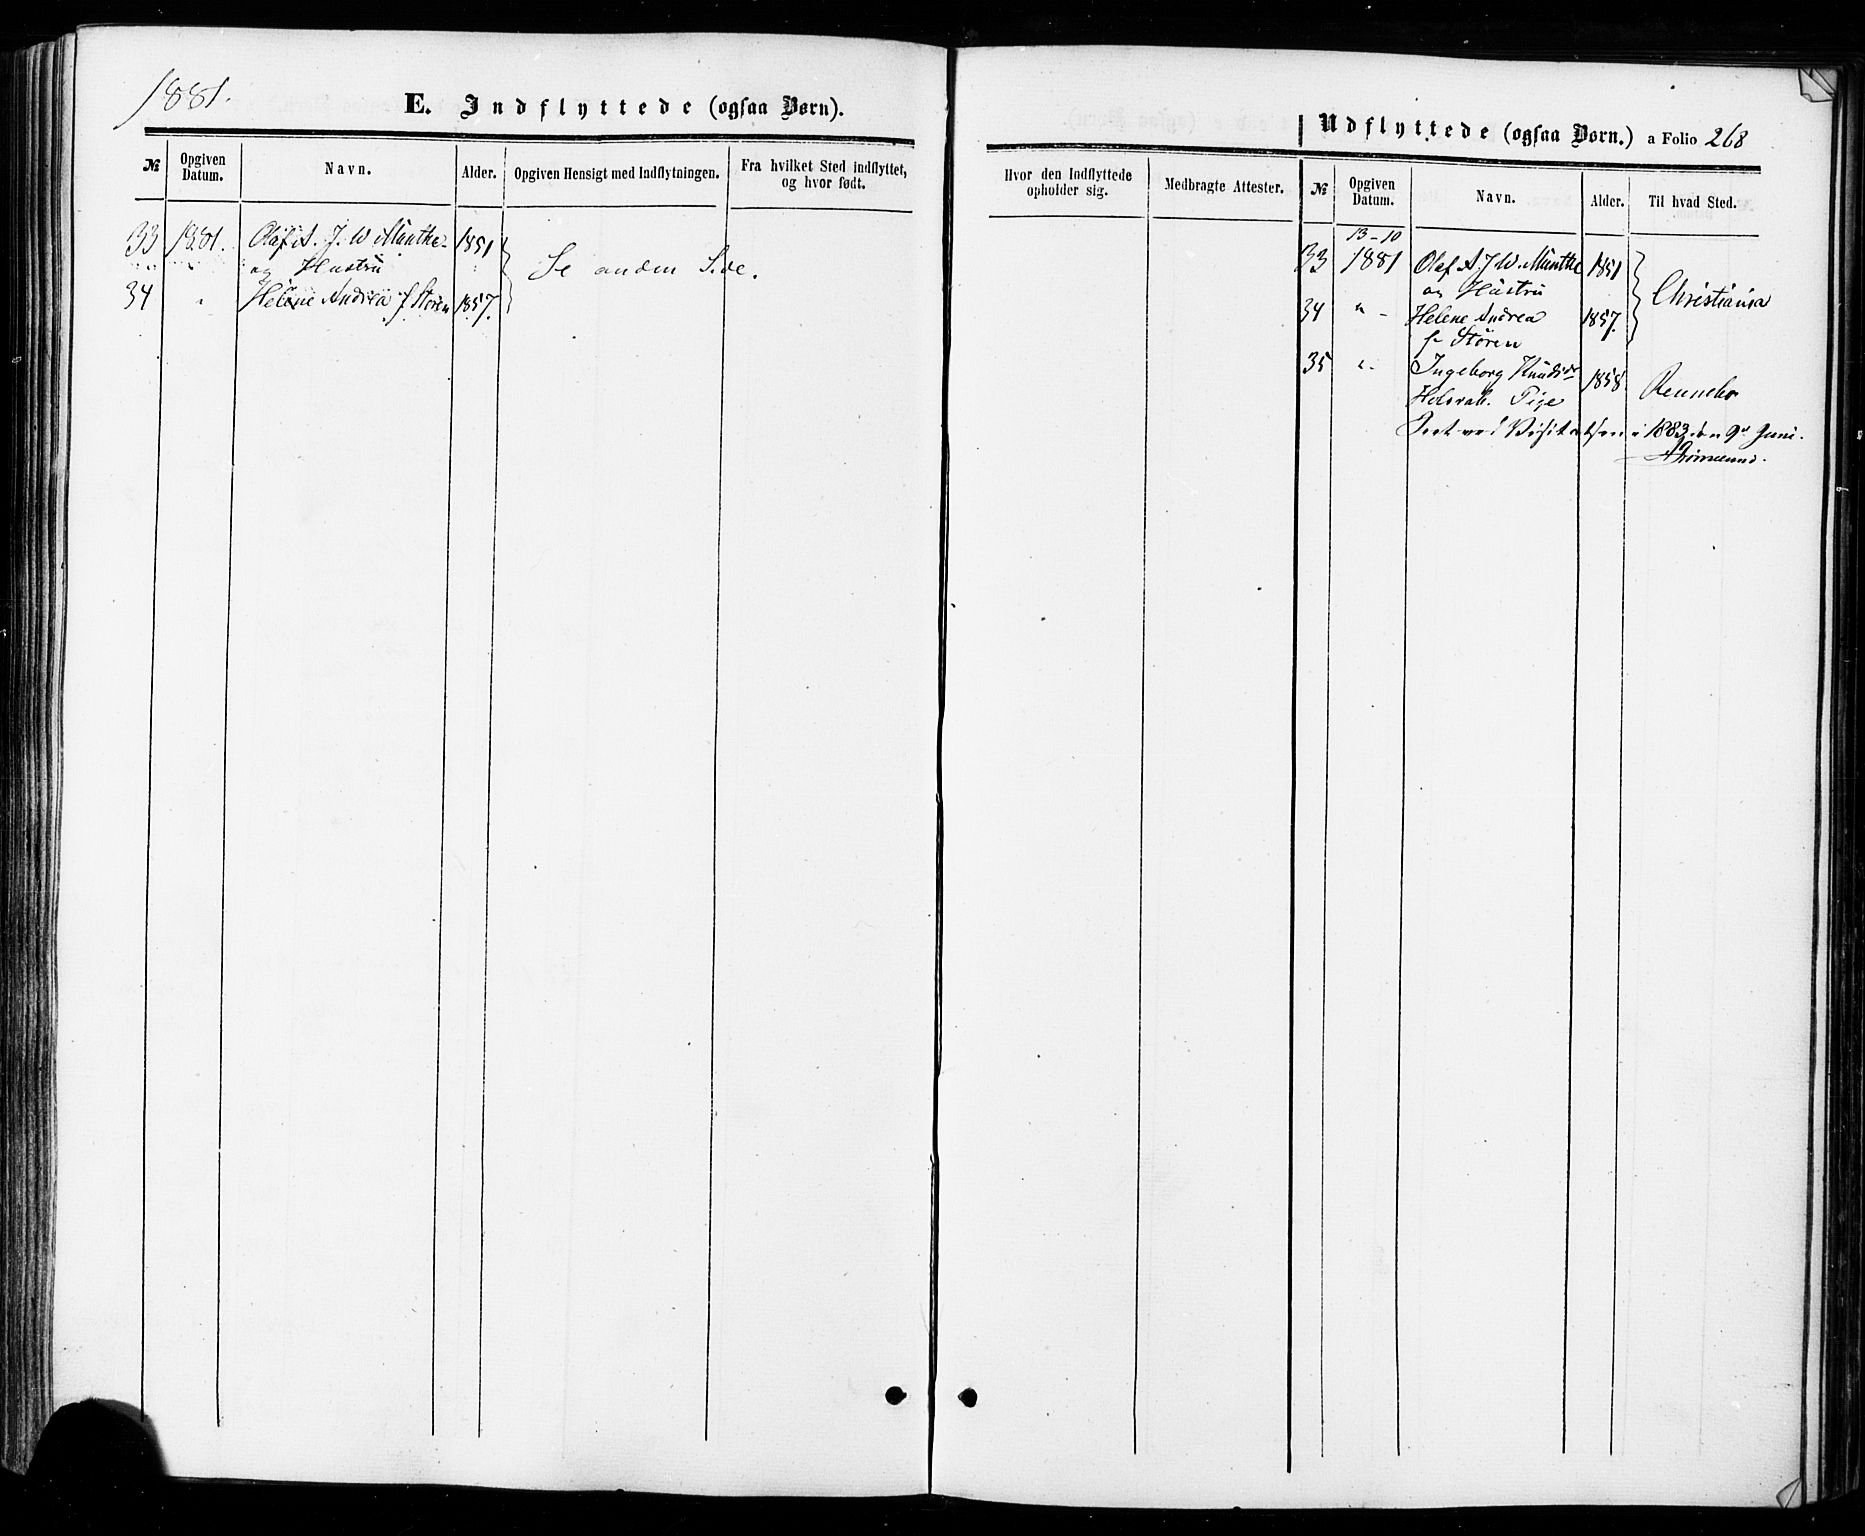 1881.
E. Indflyttede (ogsaa Børn).
№ Opgiven Datum. Navn. Alder. Opgiven Hensigt med Indflytningen. Fra hvilket Sted indflyttet, og hvor født.
33 1881. Olaf A. J. W. Munthe 1851
og Hustru
Se anden Side.
34 " Helene Andrea f. Støren 1857.
Udflyttede (ogsaa Børn.) a Folio 268
Hvor den Indflyttede opholder sig. Medbragte Attester. № Opgiven Datum. Navn. Alder. Til hvad Sted.
13-10
33 1881 Olaf A. J. W. Munthe 1851
og Hustru
Christiania
34 " - Helene Andrea 1857.
f. Støren
35 " - Ingeborg Knudsdr 1858 Rennebo
Pige
Seet ved Visitatsen i 1883 den 9de Juni.